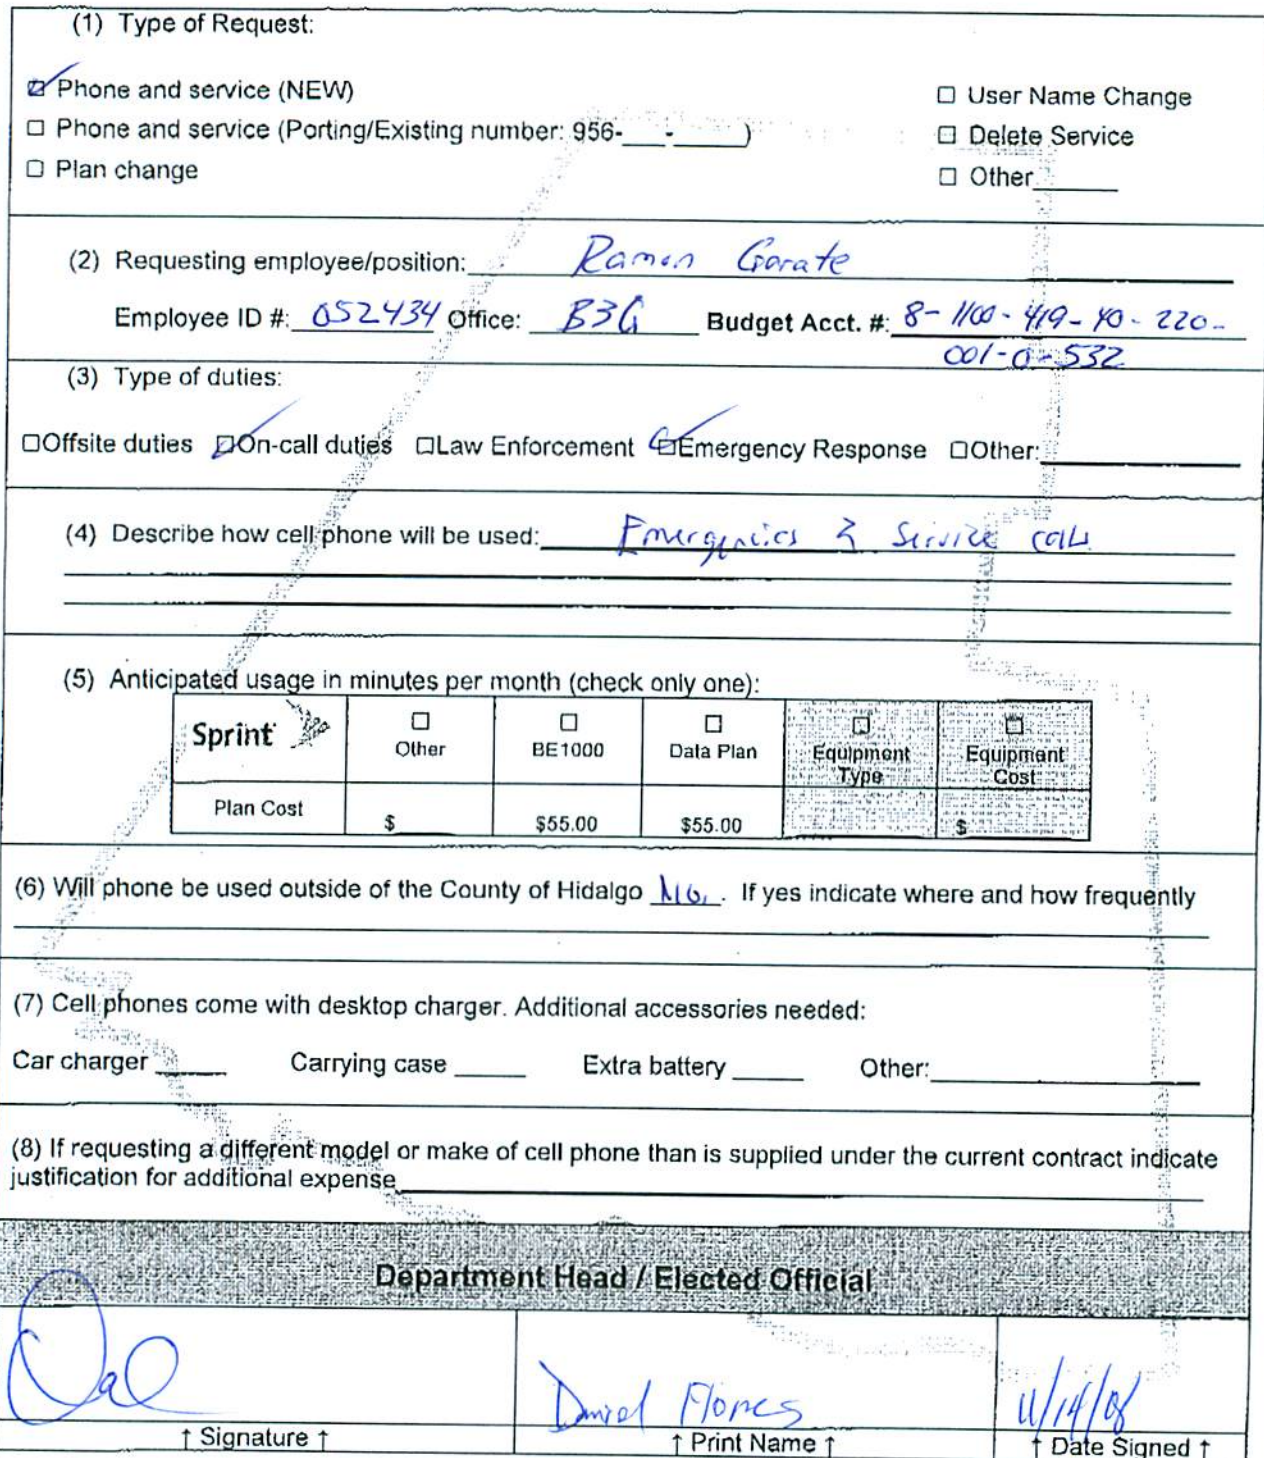 (1) Type of Request:
☑ Phone and service (NEW)
☐ User Name Change
☐ Phone and service (Porting/Existing number: 956-___-_____)
☐ Delete Service
☐ Plan change
☐ Other______
(2) Requesting employee/position: Ramon Garate
Employee ID #: 052434 Office: B3G Budget Acct. #: 8-1100-419-40-220-
001-0-532
(3) Type of duties:
☐Offsite duties ☑On-call duties ☐Law Enforcement ☑Emergency Response ☐Other:______
(4) Describe how cell phone will be used: Emergencies & Service calls
(5) Anticipated usage in minutes per month (check only one):
Sprint ☐ Other ☐ BE1000 ☐ Data Plan ☐ Equipment Type ☐ Equipment Cost
Plan Cost $____ $55.00 $55.00 $
(6) Will phone be used outside of the County of Hidalgo No. If yes indicate where and how frequently
(7) Cell phones come with desktop charger. Additional accessories needed:
Car charger _____ Carrying case _____ Extra battery _____ Other:______
(8) If requesting a different model or make of cell phone than is supplied under the current contract indicate
justification for additional expense______
Department Head / Elected Official
Daniel Flores 11/14/08
↑ Signature ↑ ↑ Print Name ↑ ↑ Date Signed ↑